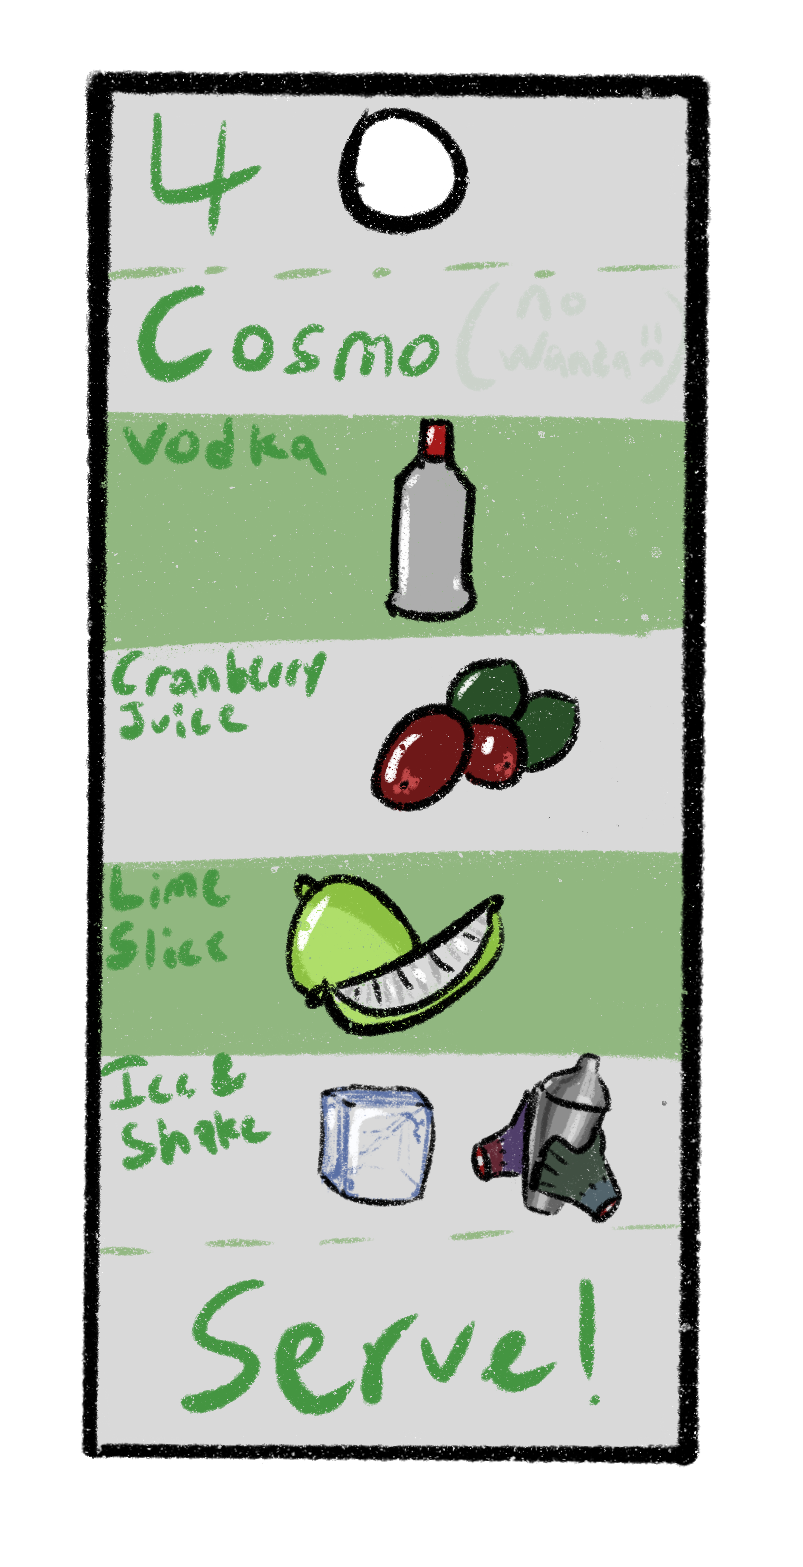 4
Cosmo (no
Wanza :()
Vodka
Cranberry
Juice
Lime
Slice
Ice &
Shake
Serve!